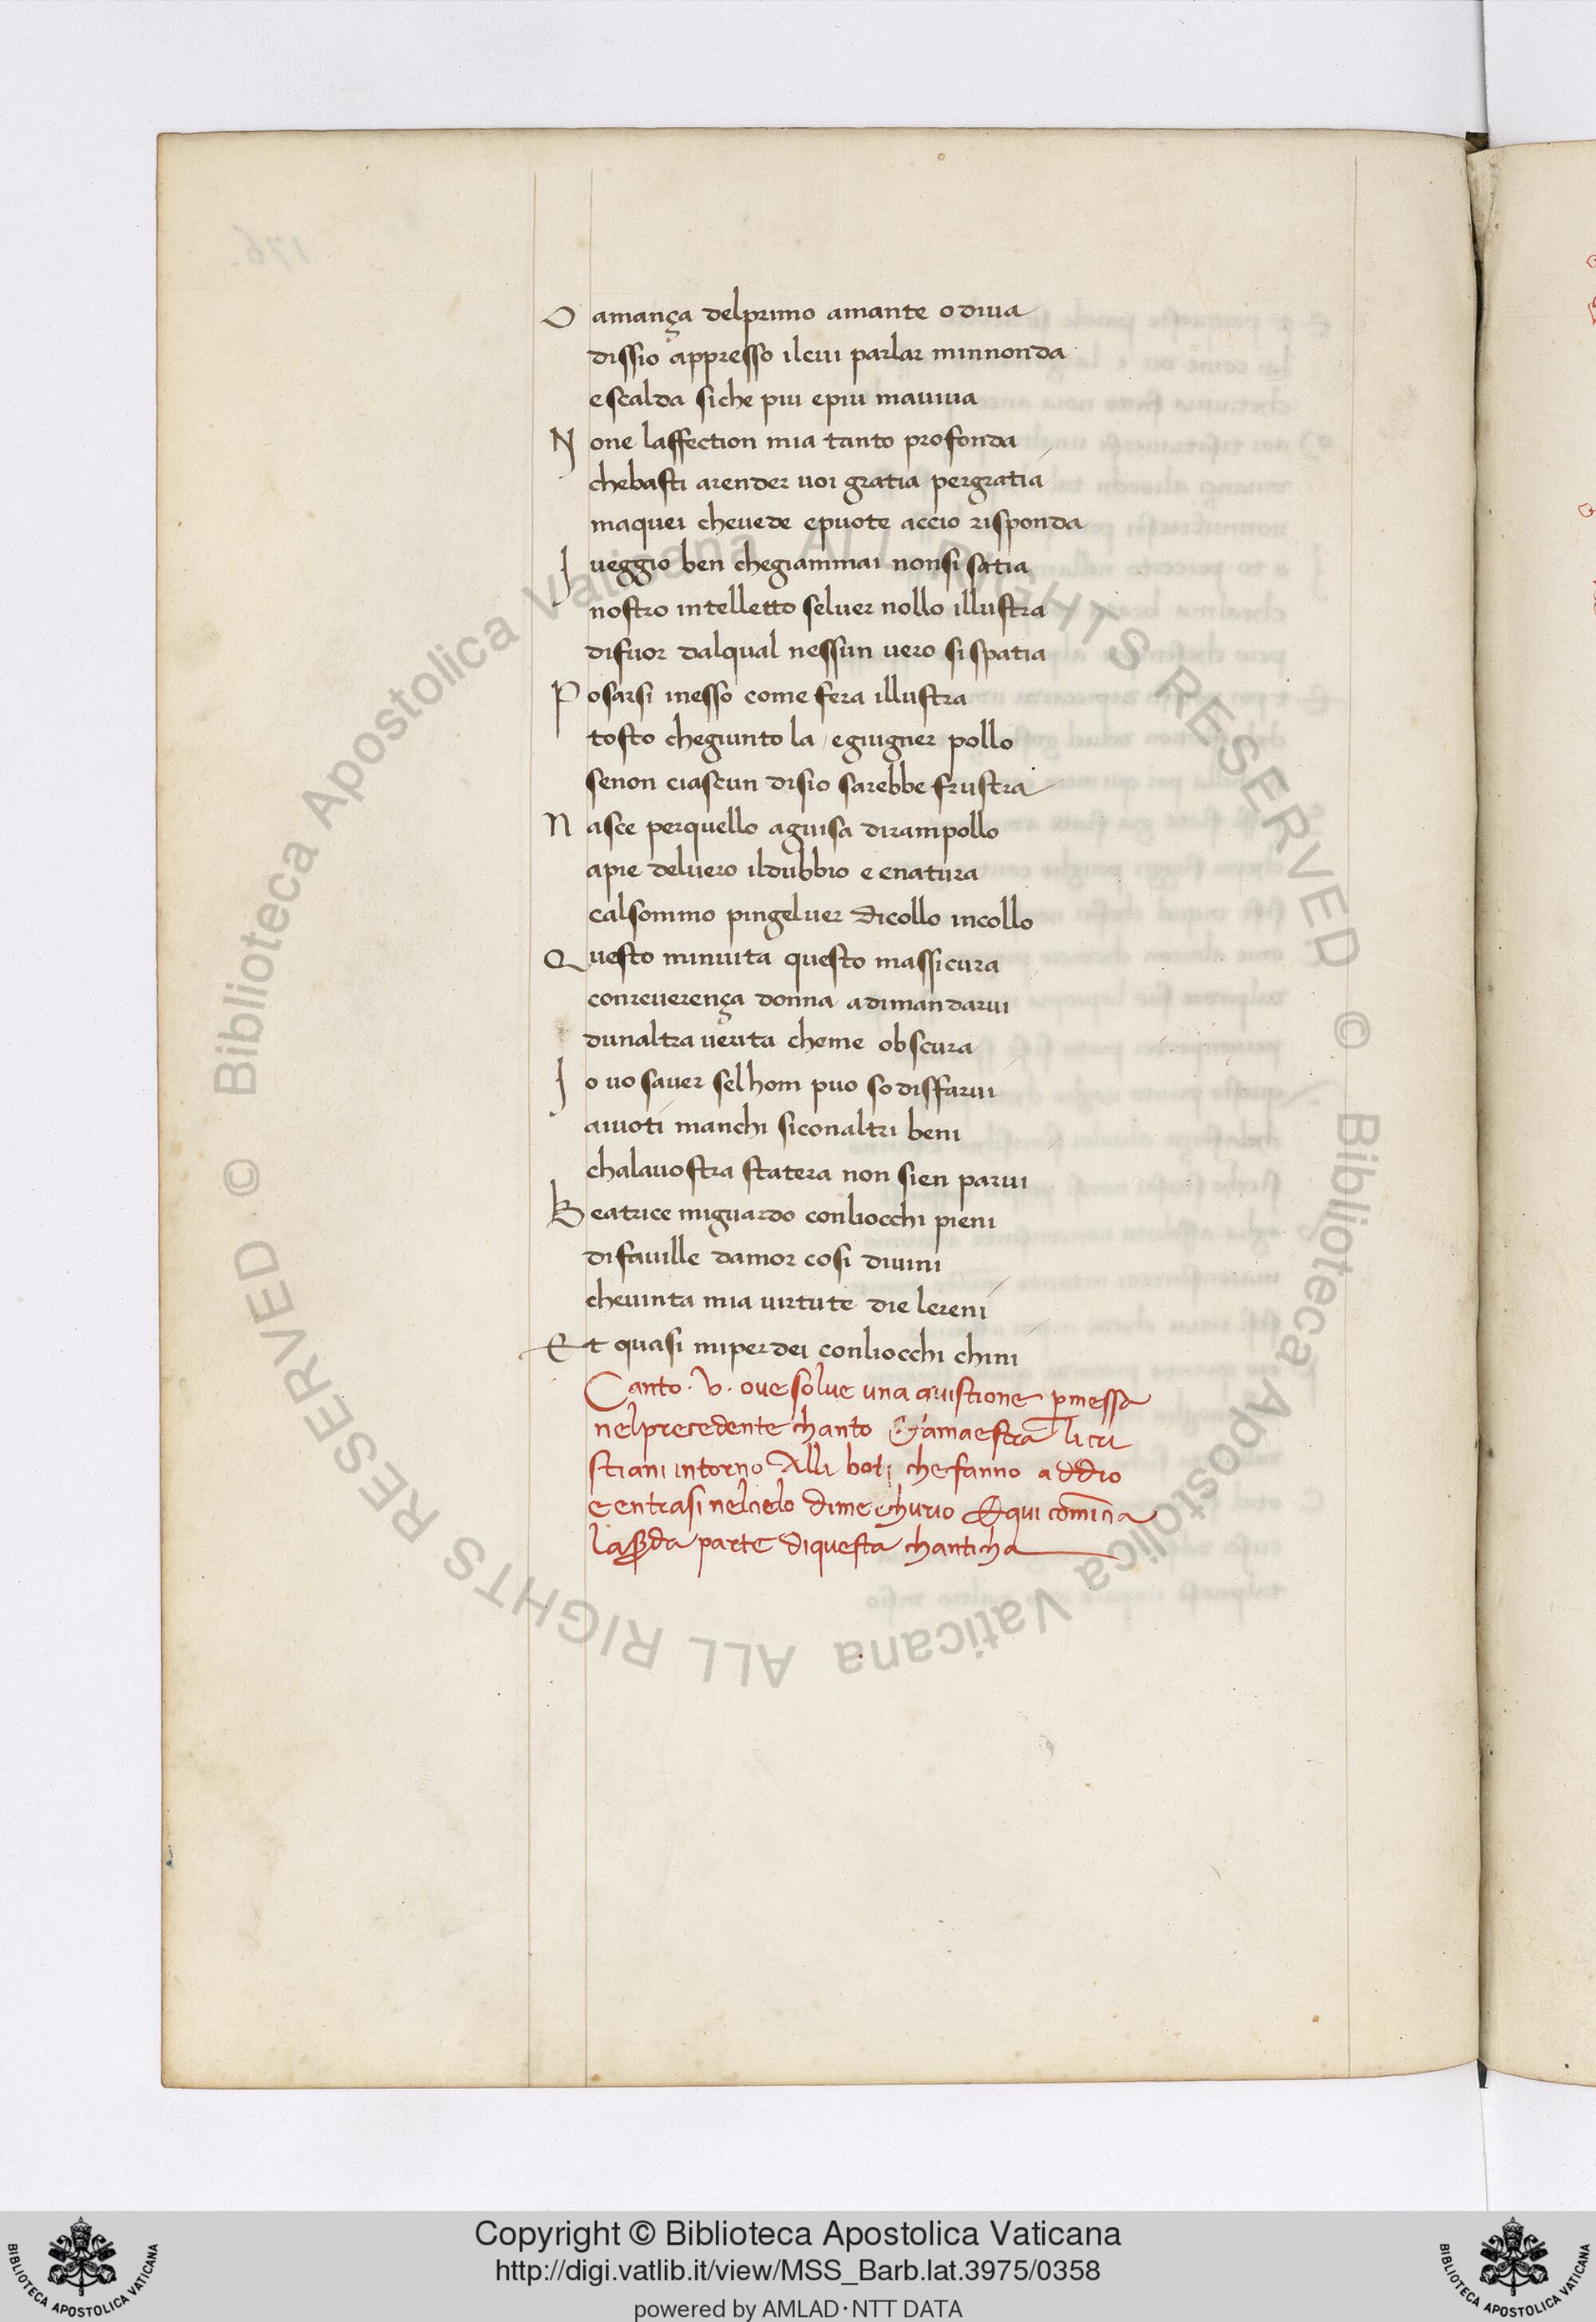 O amança delprimo amante o diua
dissio appresso ilcui parlar minnonda
escalda siche piu epiu mauiua
N one laffection mia tanto profonda
chebasti arender uoi gratia pergratia
maquei cheuede epuote accio risponda
J ueggio ben chegiammai nonsi satia
nostro intelletto seluer nollo illustra
difuor dalqual nessun uero sispatia
P osarsi inesso come fera illustra
tosto chegiunto la / egiugner pollo
senon ciascun disio sarebbe frustra
N asce perquello aguisa dirampollo
apie deluero ildubbio e enatura
calsommo pingeluer dicollo incollo
Q uesto minuita questo massicura
conreuerença donna adimandarui
dunaltra uerita cheme obscura
J o uo sauer selhom puo sodisfarui
aiuoti manchi siconaltri beni
chalauostra statera non sien parui
B eatrice miguardo conliocchi pieni
difauille damor cosi diuini
cheuinta mia uirtute die lereni
E t quasi miperdei conliocchi chini
Canto . v . oue solue una quistione pmessa
nelprecedente chanto & amaestra li cri
stiani intorno Alli boti che fanno addio
e entrasi nelcielo dimerchurio Et qui comincia
la sda parte diquesta chanticha
176.
Biblioteca Apostolica Vaticana ALL RIGHTS RESERVED ©
Biblioteca Apostolica Vaticana ALL RIGHTS RESERVED ©
Copyright © Biblioteca Apostolica Vaticana
http://digi.vatlib.it/view/MSS_Barb.lat.3975/0358
powered by AMLAD・NTT DATA
BIBLIOTECA APOSTOLICA VATICANA
BIBLIOTECA APOSTOLICA VATICANA